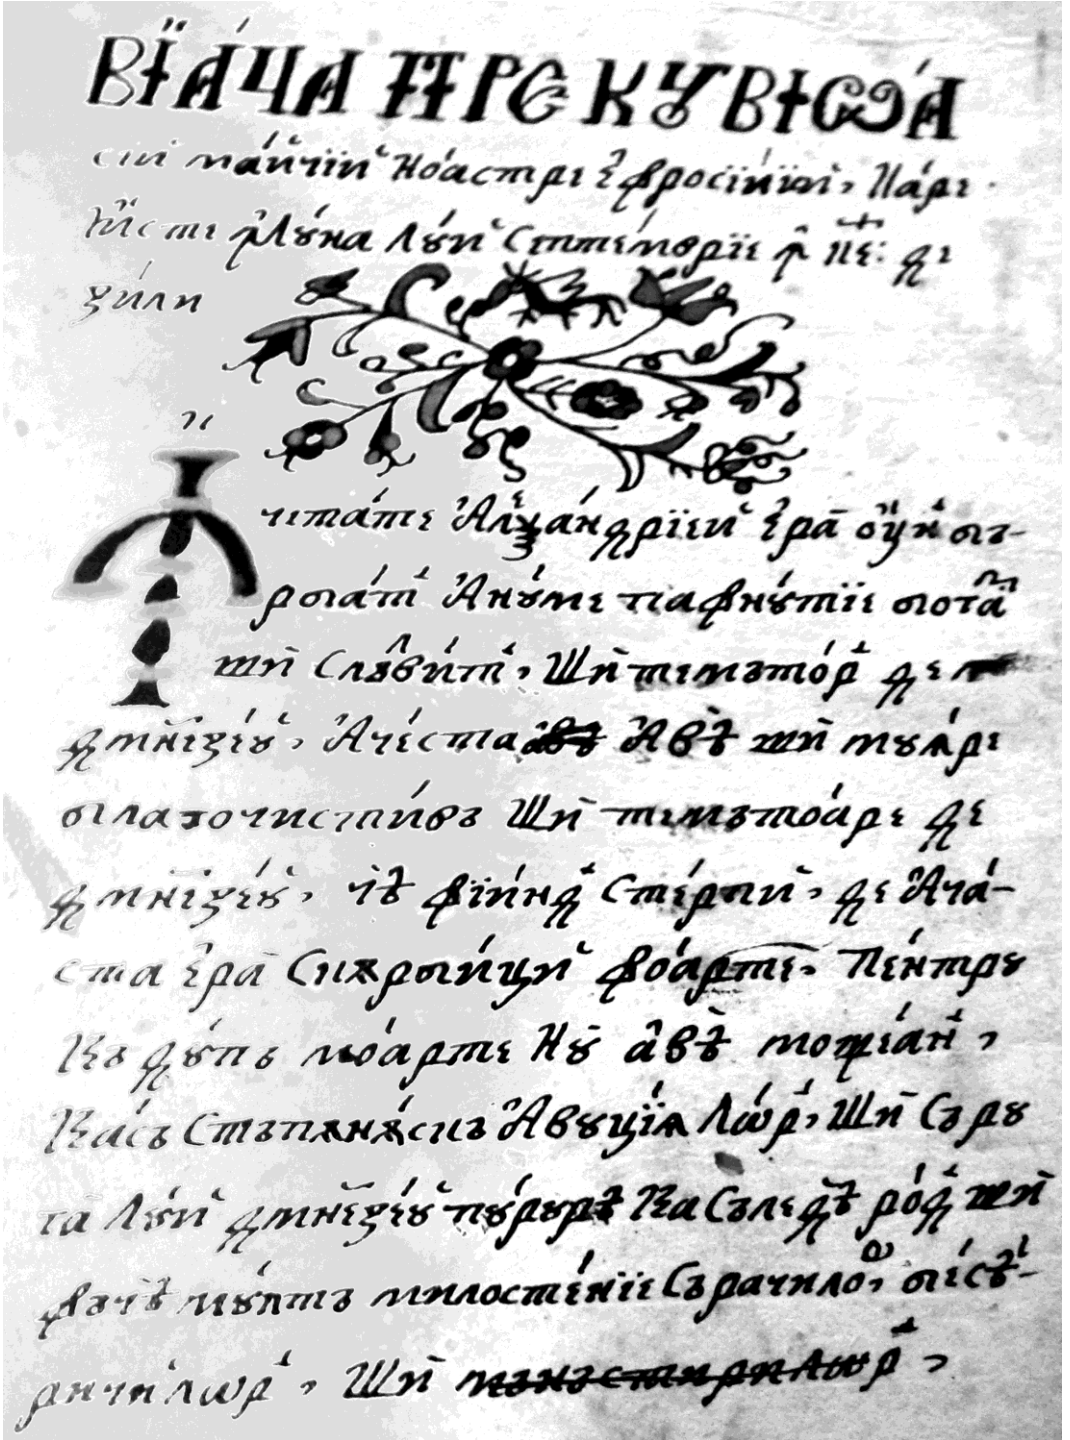 ВЇА́ЧА ПРЕ КꙊВІѠ́А
сїи ма́йчїй ноастре е҆фросїнїи, Каре
Є҆сте ꙟ҆ лꙋна лꙋй Септемврїе ꙟ҆ к҃е: де
зи́ли
четате А҆леѯандрїей е҆ра ѹн бъ-
рбат А҆нꙋме пафнꙋтїе богат
ший слъвит, Ший темътор де
дмнезеꙋ, А҆честа А҆вѣ ший мꙋꙗре
благочистивъ Ший темътоаре де
дмнезеꙋ, че фїинд стерпи, де А҆ча-
ста е҆ра Скѫрбици фоарте, Пентрꙋ
Къ дꙋпъ моарте Нꙋ а҆вѣ мощан,
Кась Стъпѫнѫскъ А҆вꙋцїѧ Лѡр, Ший Съ рꙋ
га Лꙋй дмнезеꙋ Ка Съ ле дѣ род ший
фъчѣ мꙋлтъ милостенїе Сърачило, бесѣ-
ричилѡр, Ший